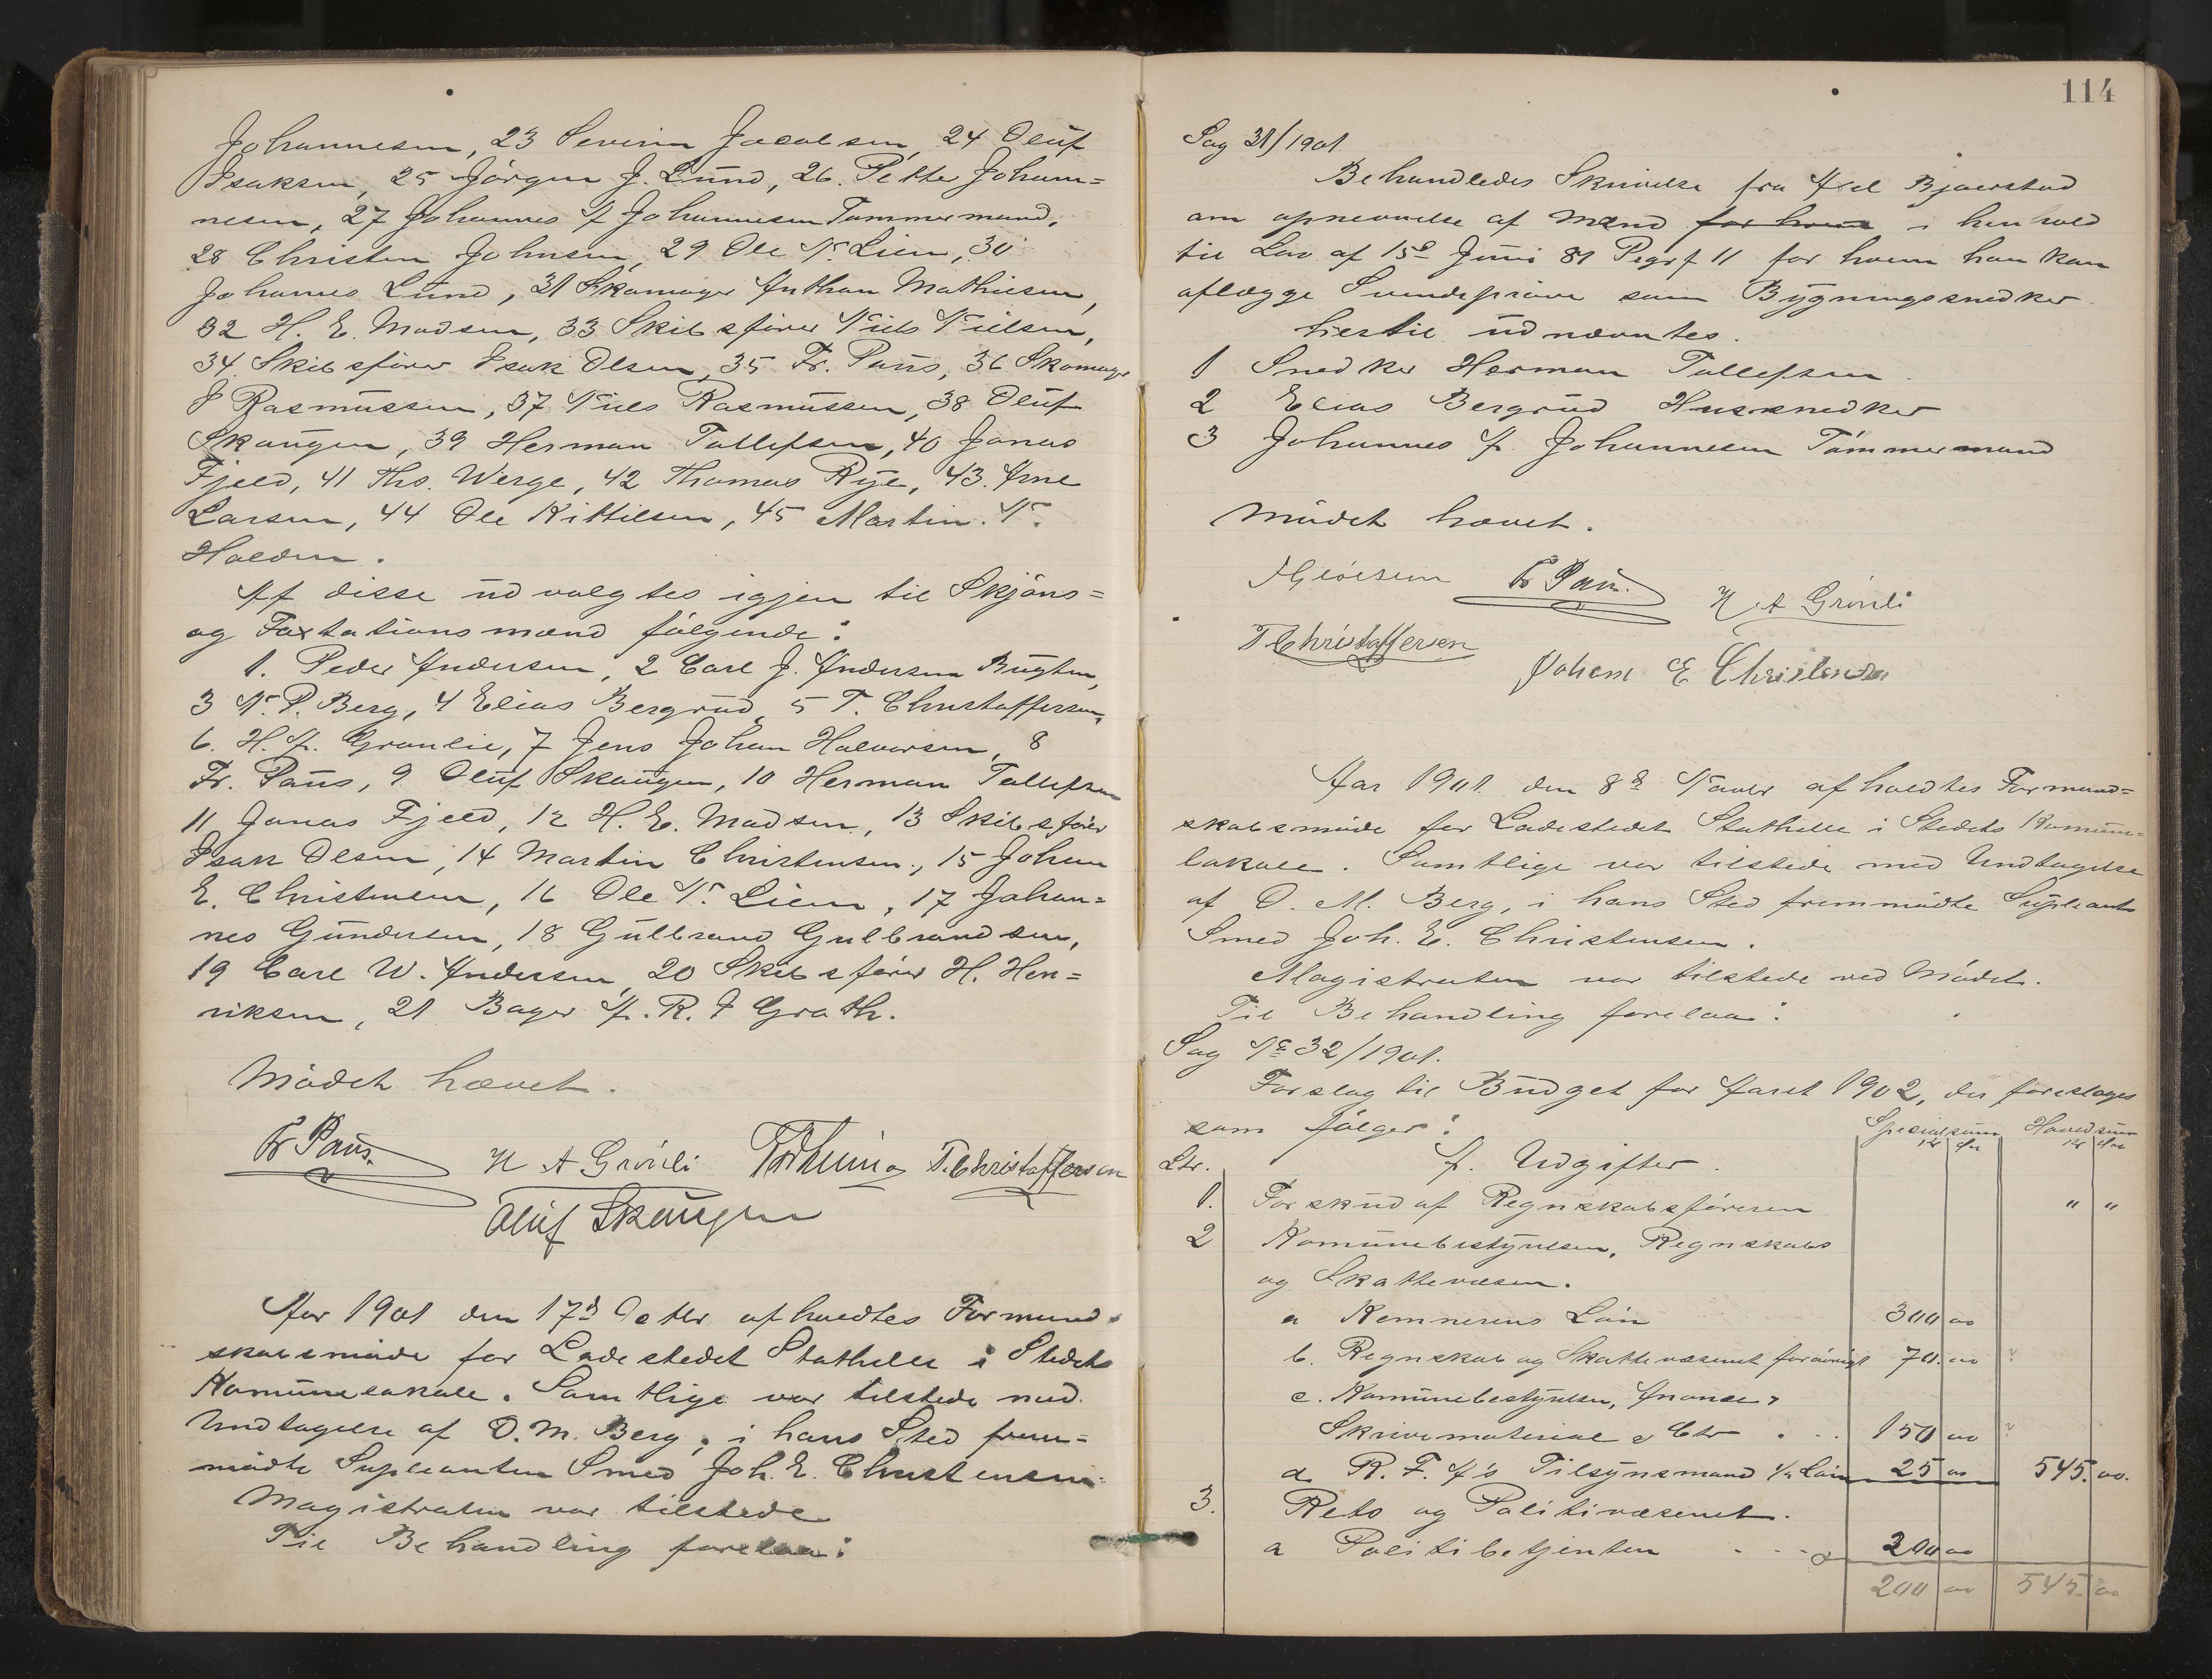 Johannesen, 23 Severin Jacobsen, 24 Oluf
Isaksen, 25 Jörgen J. Lund, 26. Petter Johan=
nesen, 27 Johannes A Johannesen Tømmermand,
28 Christen Johnsen, 29 Ole N. Lien, 30
Johannes Lund, 31 Skomager Anthon Mathiesen,
32 H. E. Madsen, 33 Skibsfører Niels Nielsen,
34. Skibsfører Isak Olsen, 35 Fr. Paus, 36 Skomager
J Rasmussen, 37 Niels Rasmussen, 38 Oluf
Skaugen, 39 Herman Tollefsen, 40 Jonas
Fjeld, 41 Ths. Werge, 42 Thomas Rye, 43. Arne
Larsen, 44 Ole Kittilsen, 45 Martin N.
Holden.
Af disse udvalgtes igjen til Skjöns=
og Taxtationsmænd følgende:
1. Peder Andersen, 2 Carl J. Andersen Bugten,
3 N. P. Berg, 4 Elias Bergrud, 5 T. Christoffersen,
6. H. A. Grønlie, 7 Jens Johan Halvorsen, 8
Fr. Paus, 9 Oluf Skaugen, 10 Herman Tollefsen
11 Jonas Fjeld, 12 H. E. Madsen, 13 Skibsfører
Isak Olsen, 14 Martin Christensen, 15 Johan
E. Christensen, 16 Ole N. Lien, 17 Johan=
nes Gundersen, 18 Gulbrand Gulbrandsen,
19 Carl W. Andersen, 20 Skibsfører H. Hen=
riksen, 21 Bager A. R. J Grath.
Mödet hævet.
Fr Paus. H A Grönli T. Christoffersen
Oluf Skaugen
Aar 1901 den 17d Octbr afholdtes Formand=
skabsmøde for Ladestedet Stathelle i Stedets
Komunelokale. Samtlige var tilstede med
Undtagelse af O. M. Berg, i hans Sted frem=
mødte Supleanten Smed Joh. E. Christensen.
Magistraten var tilstede
Til Behandling forelaa:
114
Sag 31/1901
Behandledes Skrivelse fra Axel Bjaerstad
om opnevnelse af Mænd for hvem i henhold
til Lov af 15de Juni 81 Pegrf 11 for hvem han kan
aflægge Svendepröve som Bygningssnedker.
hertil udnævntes.
1 Snedker Herman Tollefsen.
2 Elias Bergrud Hussnedker
3 Johannes A. Johannesen Tömmermand
Mödet hævet.
Fr Paus. H A Grönli
T Christoffersen
Johan E Christensen
Aar 1901 den 8de Novbr afholdtes Formand=
skabsmöde for Ladestedet Stathelle i Stedets Komune=
lokale. Samtlige var tilstede med Undtagelse
af O. M. Berg, i hans Sted fremmödte Supleant
Smed Joh. E. Christensen.
Magistraten var tilstede ved Mödet.
Til Behandling forelaa:
Sag No 32/1901.
Forslag til Budget for Aaret 1902, der foreslages
som fölger:
Spesialsum Hovedsum
Kr Öre Kr Öre
Ltr. A. Udgifter.
1. Forskud af Regnskabsføreren " "
2 Komunebestyrelsen, Regnskabs
og Skattevæsen.
a Kemnerens Lön 300 00
b. Regnskab og Skattevæsenet forövrigt 70. 00
c. Komunebestyrelsen, Anonser
Skrivematerial & Ctr 150 00
d R. F. A's Tilsynsmand ½ Lön 25 00 545. 00.
3. Rets og Politivæsenet.
a Politibetjenten 200 00
200 00 545. 00